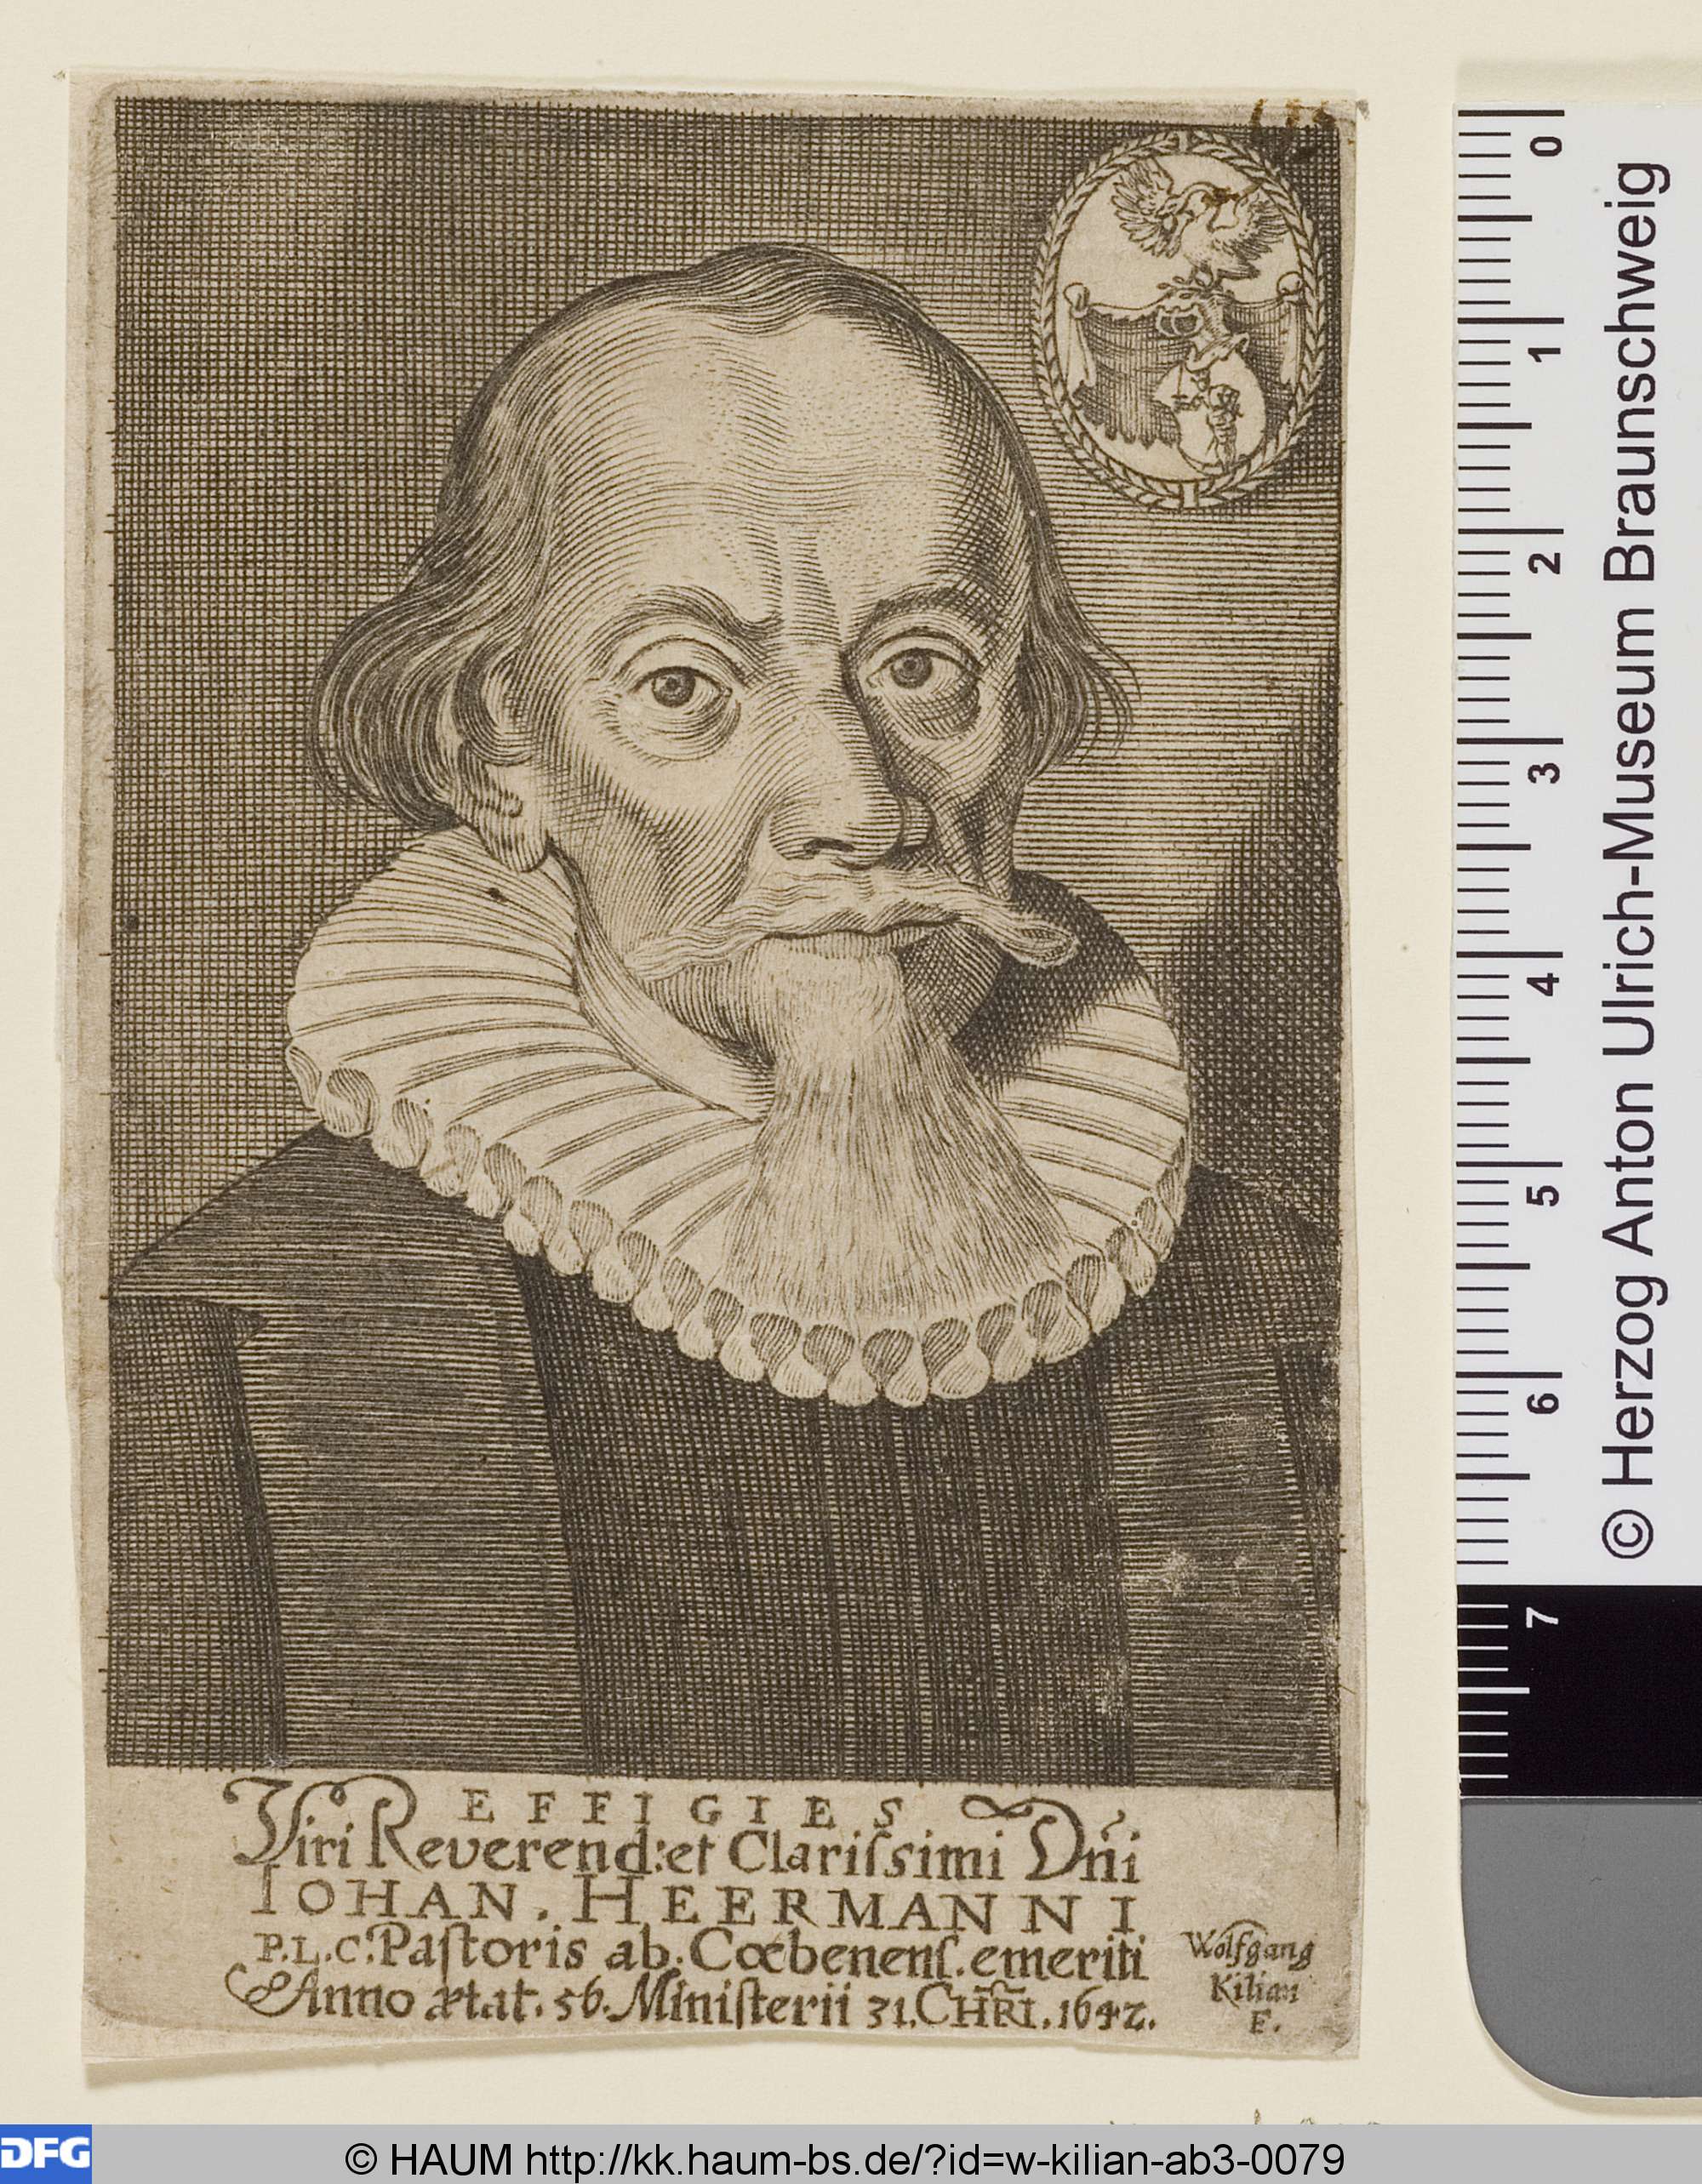 EFFIGIES
Viri Reverend: et Clariſsimi Dn̄i
IOHAN. HEERMANNI
P.L.C. Paſtoris ab. Cœbenenſ. emeriti
Anno ætat. 56. Miniſterii 31. CHR̄I. 1642.
Wolfgang
Kilian
F.
0
1
2
3
4
5
6
7
© Herzog Anton Ulrich-Museum Braunschweig
DFG
© HAUM http://kk.haum-bs.de/?id=w-kilian-ab3-0079